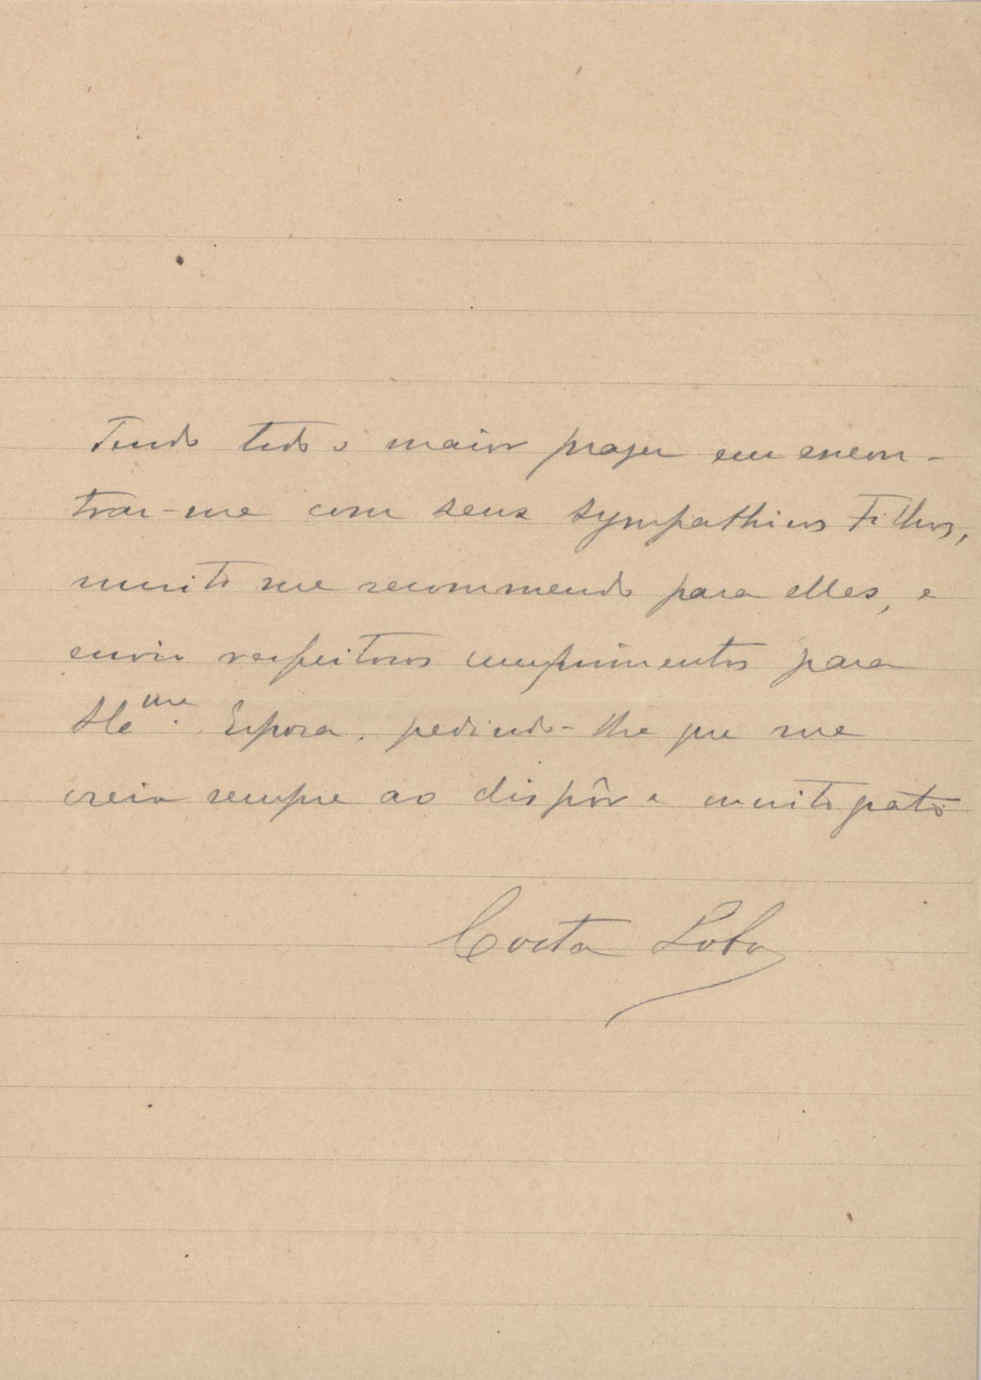 Tendo tido o maior prazer em encon-
trar-me com seus sympathicos Filhos,
muito me recommendo para elles, e
envio respeitosos cumprimentos para
Esposa, pedindo-lhe que me
creia sempre ao dispôr e muito grato
Costa Lobo